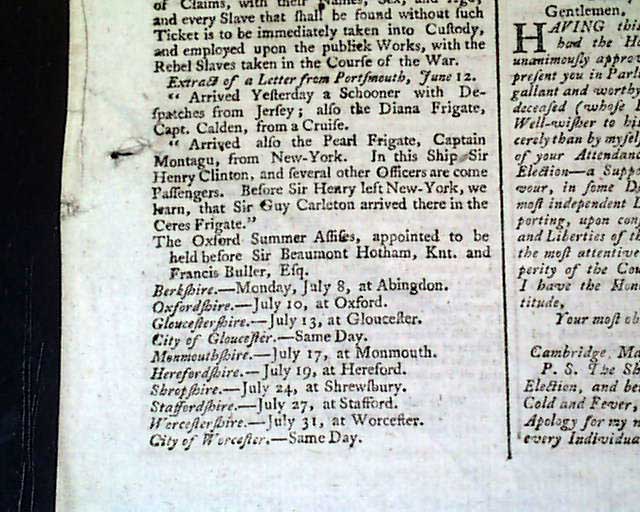 of Claims, with their Names, Sex, and Age,
and every Slave that ſhall be found without ſuch
Ticket is to be immediately taken into Cuſtody,
and employed upon the publick Works, with the
Rebel Slaves taken in the Courſe of the War.
Extract of a Letter from Portſmouth, June 12.
“ Arrived Yeſterday a Schooner with De-
ſpatches from Jerſey; alſo the Diana Frigate,
Capt. Calden, from a Cruiſe.
“ Arrived alſo the Pearl Frigate, Captain
Montagu, from New-York. In this Ship Sir
Henry Clinton, and ſeveral other Officers are come
Paſſengers. Before Sir Henry left New-York, we
learn, that Sir Guy Carleton arrived there in the
Ceres Frigate.”
The Oxford Summer Aſſiſes, appointed to be
held before Sir Beaumont Hotham, Knt. and
Francis Buller, Eſq.
Berkſhire.—Monday, July 8, at Abingdon.
Oxfordſhire.—July 10, at Oxford.
Glouceſterſhire.—July 13, at Glouceſter.
City of Glouceſter.—Same Day.
Monmouthſhire.—July 17, at Monmouth.
Herefordſhire.—July 19, at Hereford.
Shropſhire.—July 24, at Shrewſbury.
Staffordſhire.—July 27, at Stafford.
Worceſterſhire.—July 31, at Worceſter.
City of Worceſter.—Same Day.
Gentlemen,
HAVING this
had the Ho
unanimouſly approv
preſent you in Parl
gallant and worthy
deceaſed (whoſe
Well-wiſher to hi
cerely than by myſel
of your Attendan
Election—a Suppo
vour, in ſome D
moſt independent
porting, upon con
and Liberties of th
the moſt attentive
perity of the Cou
I have the Hon
titude,
Your moſt ob
Cambridge, Ma
P. S. The Sh
Election, and be
Cold and Fever,
Apology for my n
every Individua